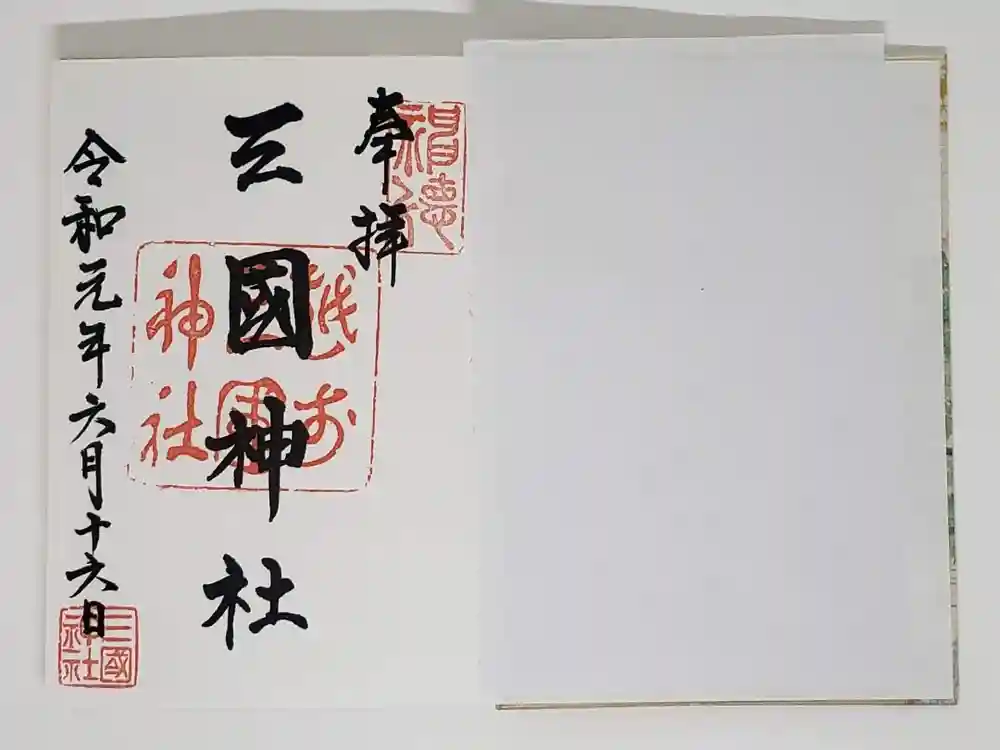 奉拝
三國神社
越前
神社
令和元年六月十六日
三國
神社